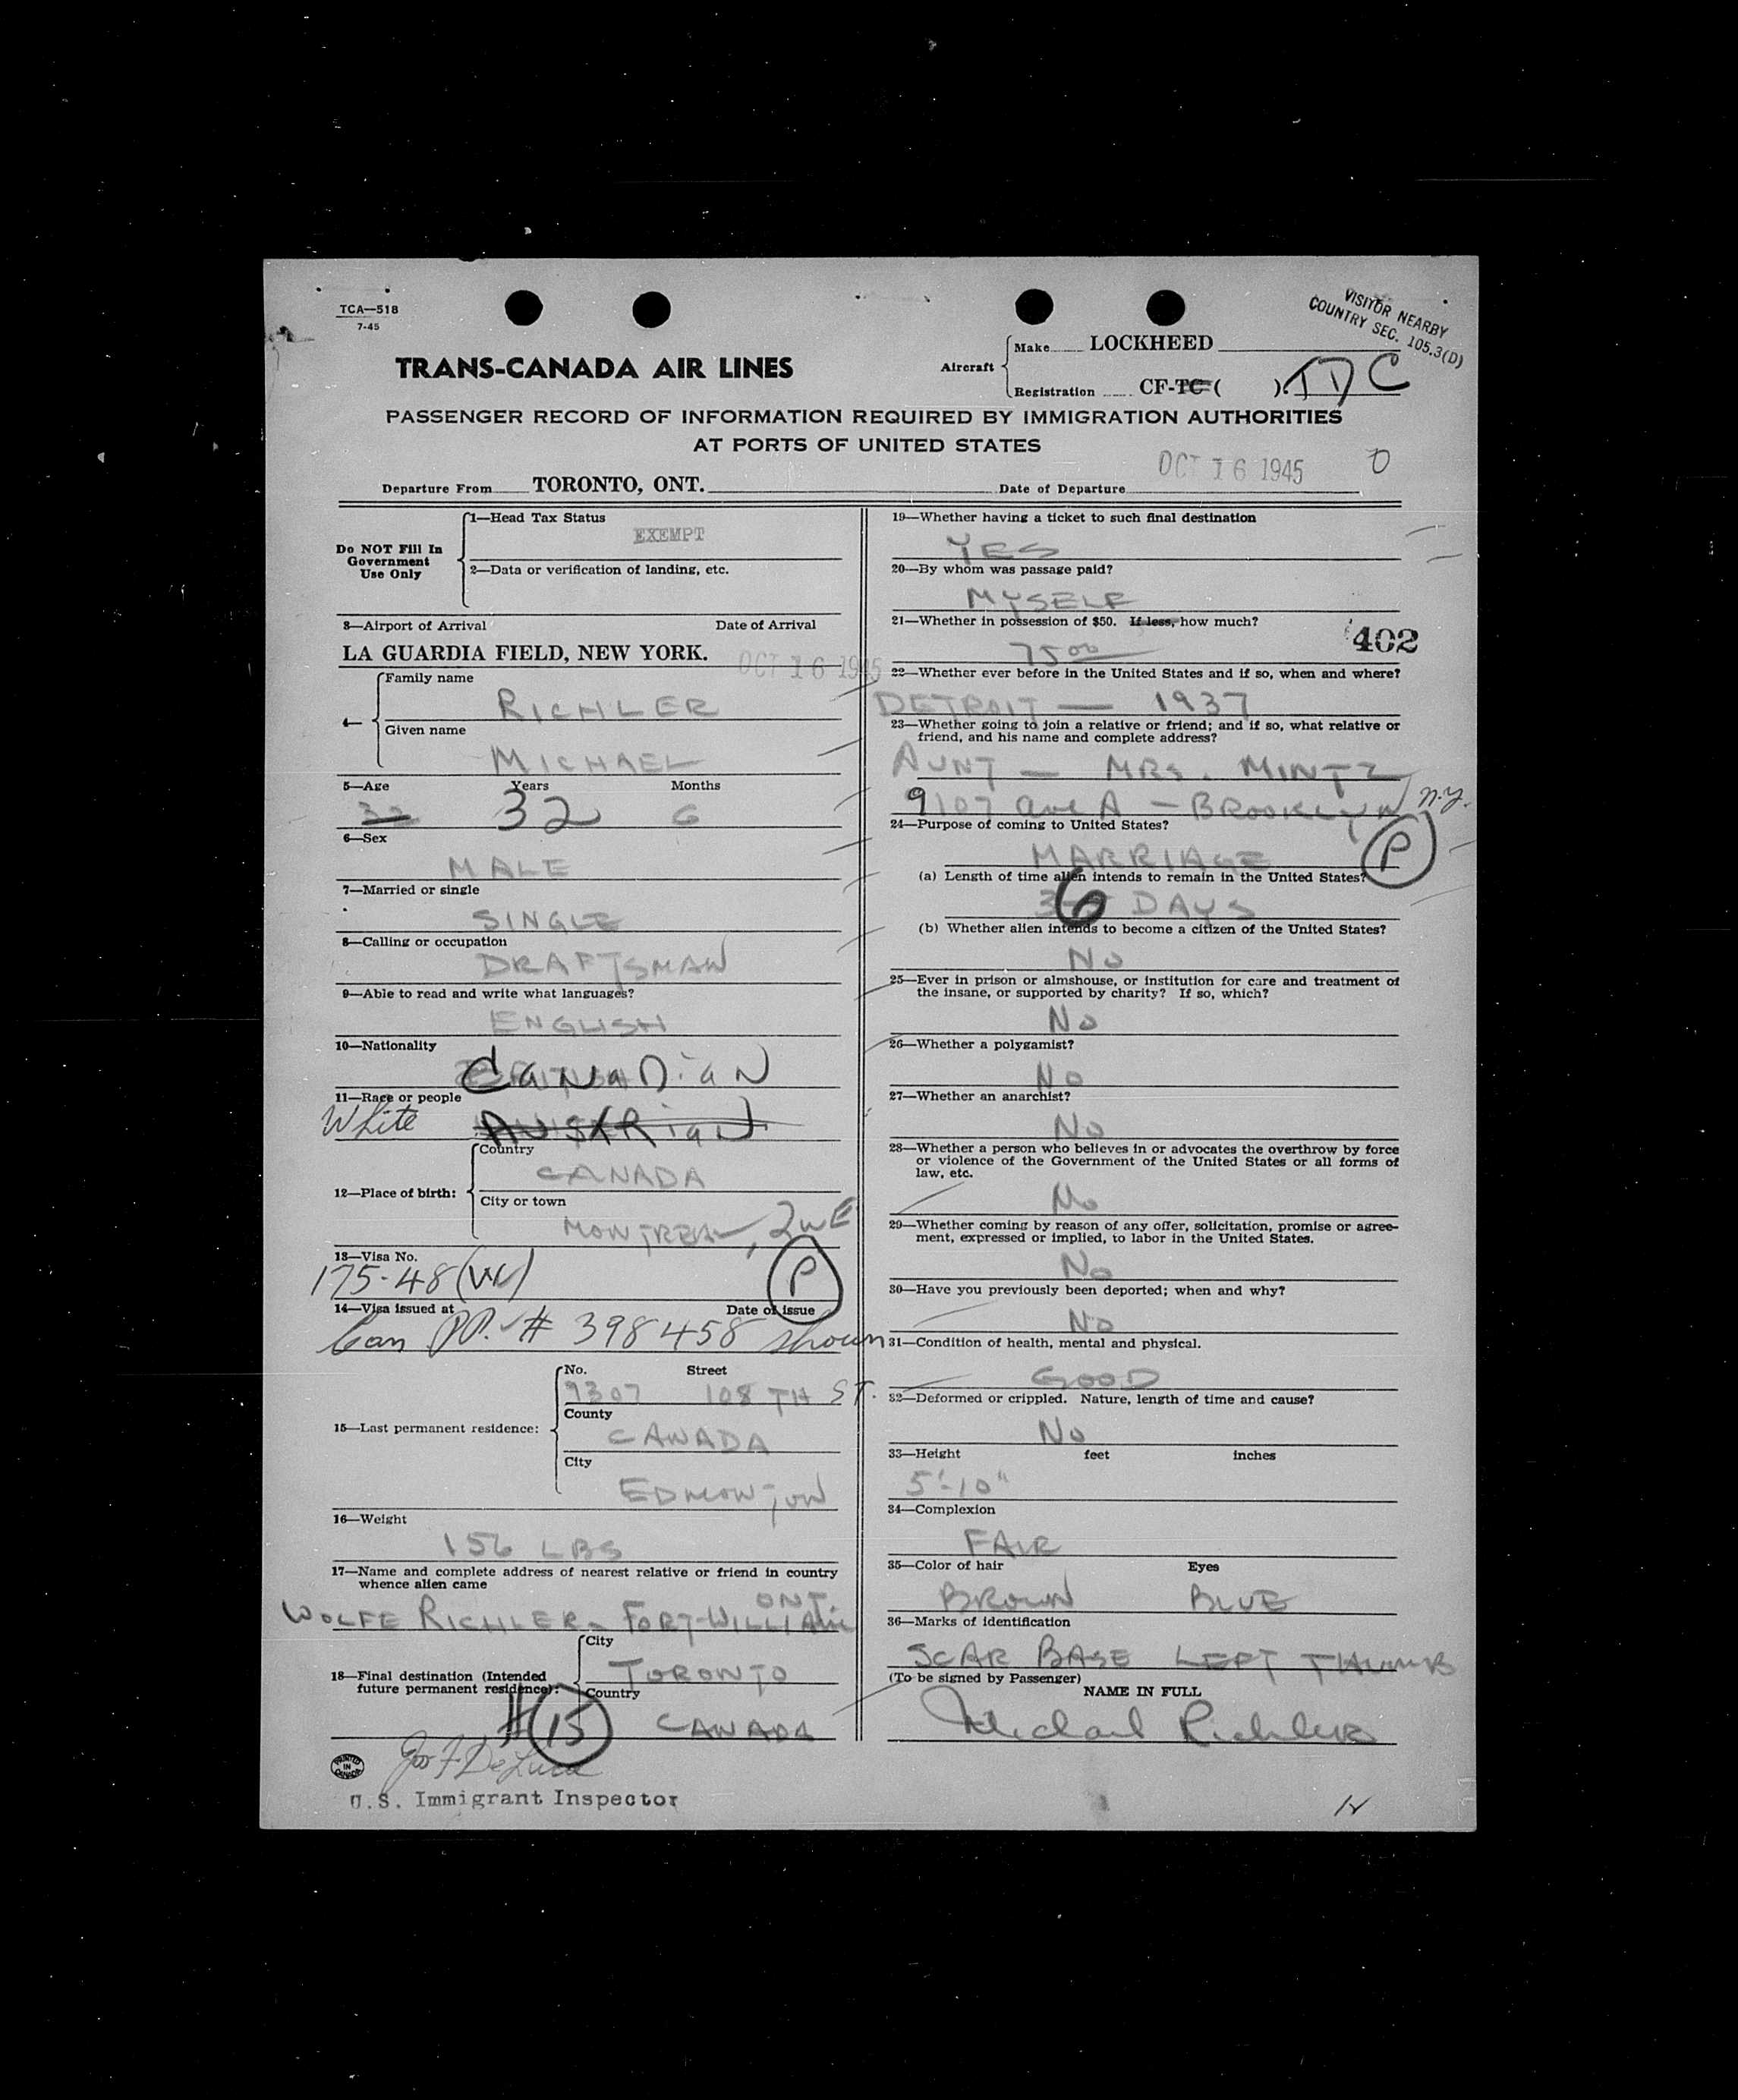 TCA—518
7-45
VISITOR NEARBY
COUNTRY SEC. 105.3(D)
TRANS-CANADA AIR LINES
Aircraft
Make LOCKHEED
Registration CF-TC ( ). TDC
PASSENGER RECORD OF INFORMATION REQUIRED BY IMMIGRATION AUTHORITIES
AT PORTS OF UNITED STATES
Departure From TORONTO, ONT.
Date of Departure OCT 16 1945
Do NOT Fill In
Government
Use Only
1—Head Tax Status
EXEMPT
2—Data or verification of landing, etc.
3—Airport of Arrival Date of Arrival
LA GUARDIA FIELD, NEW YORK. OCT 16 1945
4—
Family name
RICHLER
Given name
MICHAEL
5—Age Years Months
32 32 6
6—Sex
MALE
7—Married or single
SINGLE
8—Calling or occupation
DRAFTSMAN
9—Able to read and write what languages?
ENGLISH
10—Nationality
CANADIAN
11—Race or people
White AUSTRIAN
12—Place of birth:
Country
CANADA
City or town
MONTREAL, QUE
13—Visa No.
175-48 (VC)
P
14—Visa issued at Date of issue
Can PP. # 398458 shown
15—Last permanent residence:
No. Street
9307 108 TH ST.
County
CANADA
City
EDMONTON
16—Weight
156 LBS
17—Name and complete address of nearest relative or friend in country
whence alien came
WOLFE RICHLER - FORT-WILLIAM ONT.
18—Final destination (Intended
future permanent residence):
City
TORONTO
Country
CANADA
# 15
PRINTED
IN
CANADA
Jos F De Luca
U.S. Immigrant Inspector
19—Whether having a ticket to such final destination
YES
20—By whom was passage paid?
MYSELF
21—Whether in possession of $50. If less, how much?
75 00
402
22—Whether ever before in the United States and if so, when and where?
DETROIT — 1937
23—Whether going to join a relative or friend; and if so, what relative or
friend, and his name and complete address?
AUNT — MRS. MINTZ
9107 Ave A — BROOKLYN N.Y.
24—Purpose of coming to United States?
MARRIAGE
P
(a) Length of time alien intends to remain in the United States?
6 DAYS
(b) Whether alien intends to become a citizen of the United States?
No
25—Ever in prison or almshouse, or institution for care and treatment of
the insane, or supported by charity? If so, which?
No
26—Whether a polygamist?
No
27—Whether an anarchist?
No
28—Whether a person who believes in or advocates the overthrow by force
or violence of the Government of the United States or all forms of
law, etc.
No
29—Whether coming by reason of any offer, solicitation, promise or agree-
ment, expressed or implied, to labor in the United States.
No
30—Have you previously been deported; when and why?
No
31—Condition of health, mental and physical.
GOOD
32—Deformed or crippled. Nature, length of time and cause?
No
33—Height feet inches
5'-10"
34—Complexion
FAIR
35—Color of hair Eyes
BROWN BLUE
36—Marks of identification
SCAR BASE LEFT THUMB
(To be signed by Passenger)
NAME IN FULL
Michael Richler